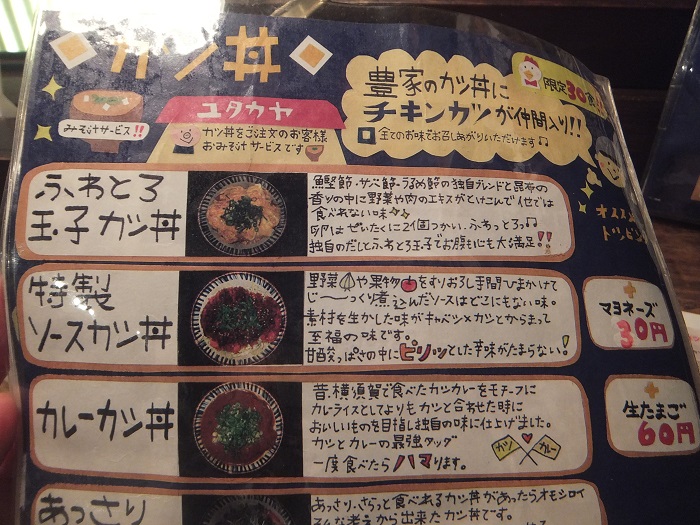 カツ丼
みそ汁サービス!!
ユタカヤ
カツ丼をご注文のお客様
おみそ汁サービスです
豊家のカツ丼に
チキンカツが仲間入り!!
全てのお味でお召しあがりいただけます♪
限定30食
ふわとろ
玉子カツ丼
鰹節・サバ節・うるめ節の独自ブレンドと昆布の
香りの中に野菜や肉のエキスがとけこんでイセでは
食べれない味
卵はぜいたくに2個つかい、ふわっとろっ♫
独自のだしとふわとろ玉子でお腹も心も大満足!!
オススメ
トッピン
特製
ソースカツ丼
野菜や果物をすりおろし手間ひまかけて
じ〜っくり煮込んだソースはどこにもない味。
素材を生かした味がキャベツ×カツとからまって
至福の味です。
甘酸っぱさの中にピリッとした辛味がたまらない!
+
マヨネーズ
30円
カレーカツ丼
昔、横須賀で食べたカツカレーをモチーフに
カレーライスとしてよりもカツと合わせた時に
おいしいものを目指し独自の味に仕上げました。
カツとカレーの最強タッグ
一度食べたらハマります。
カツ
カレー
+
生たまご
60円
あっさり
あっさり、さらっと食べれるカツ丼があったらオモシロイ
そんな考えから出来たカツ丼です。